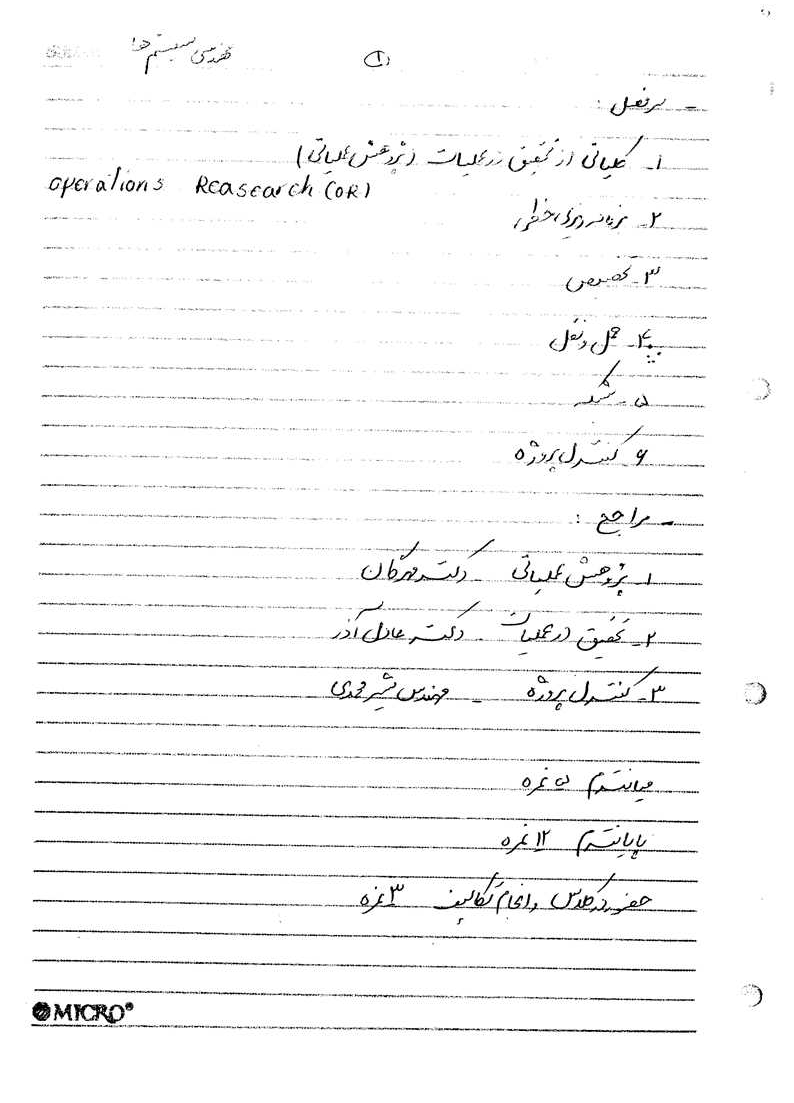 مهندسی سیستم ها
۱
- سرفصل :
۱- کلیاتی از تحقیق در عملیات (پژوهش عملیاتی)
operations Reasearch (OR)
۲- برنامه ریزی خطی
۳- تخصیص
۴- حمل و نقل
۵- شبکه
۶ کنترل پروژه
- مراجع :
۱- پژوهش عملیاتی - دکتر مهرگان
۲- تحقیق در عملیات - دکتر عادل آذر
۳- کنترل پروژه - مهندس شیرمحمدی
میانترم ۵ نمره
پایانترم ۱۲ نمره
حضور در کلاس و انجام تکالیف ۳ نمره
MICRO®